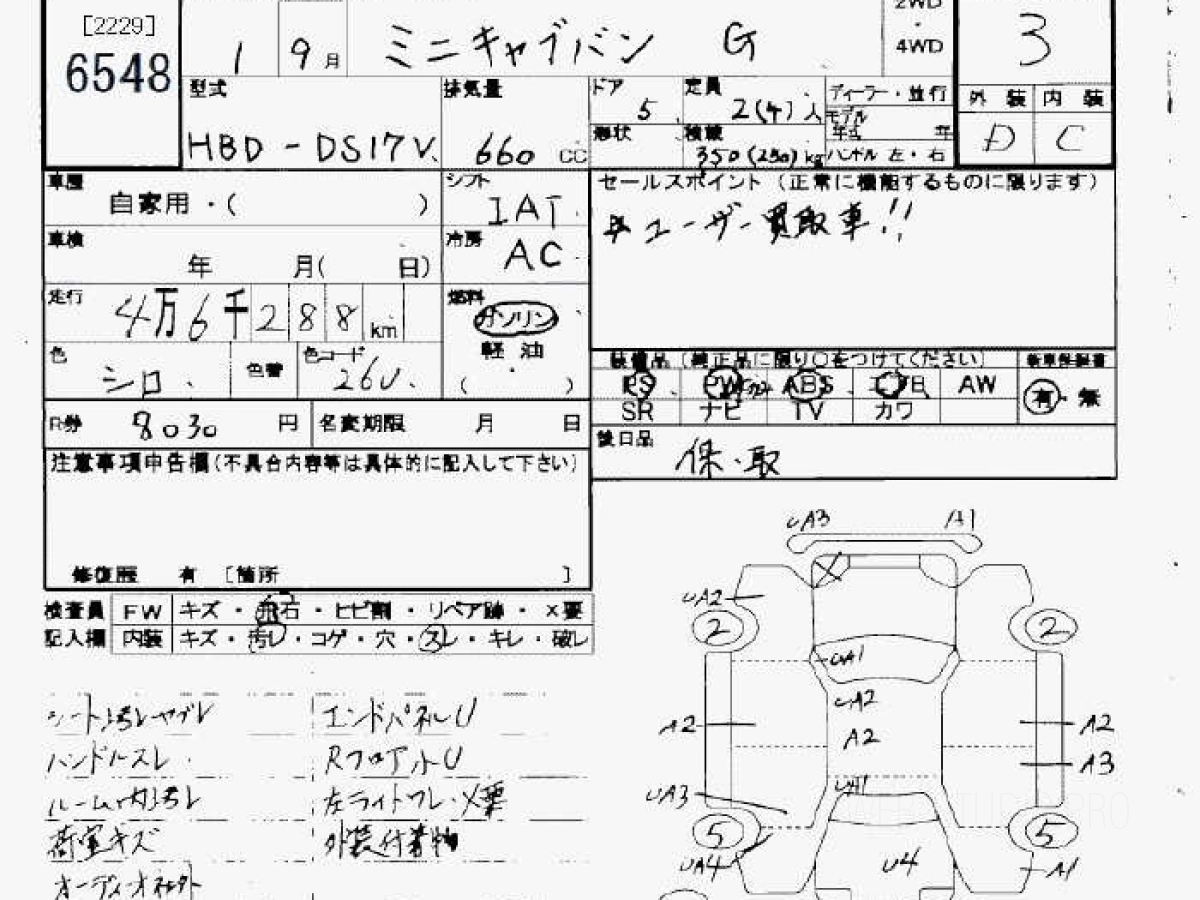 [2229]
6548
1 9月 ミニキャブバン G
2WD
・
4WD
3
型式 HBD-DS17V
排気量 660 CC
ドア 5
定員 2(4)人
形状
積載 350(250)kg
ディーラー・並行
モデル
年式 年
ハンドル 左・右
外装 内装
D C
車歴 自家用・( )
シフト IAT
車検 年 月( 日)
冷房 AC
走行 4万6千288km
燃料 ガソリン
軽油
( ・ )
色 シロ
色替
色コード 26U
R券 8030円
名変期限 月 日
セールスポイント(正常に機能するものに限ります)
ユーザー買取車!!
装備品(純正品に限り○をつけてください)
新車保証書
PS PW ABS AW
SR ナビ TV カワ
有・無
後日品 保・取
注意事項申告欄(不具合内容等は具体的に記入して下さい)
修復歴 有 [箇所 ]
検査員 FW キズ・飛石・ヒビ割・リペア跡・×要
記入欄 内装 キズ・汚レ・コゲ・穴・スレ・キレ・破レ
シート汚レヤブレ
ハンドルスレ
ルーム内汚レ
荷室キズ
オーディオ
エンドパネルU
RフロアU
外装付着物
UA3 A1
UA2
2 2
UA1
UA2
A2
A2
A2
A3
UA1
UA3
5 5
UA4
U4
A1